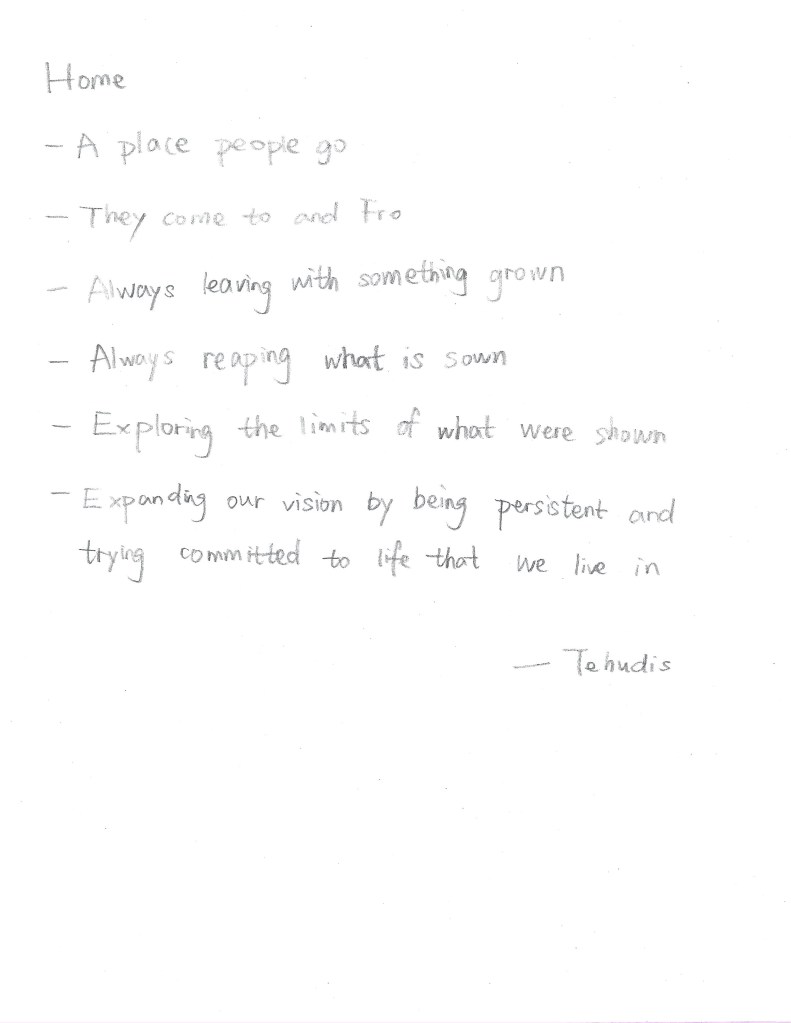 Home
- A place people go
- They come to and Fro
- Always leaving with something grown
- Always reaping what is sown
- Exploring the limits of what were shown
- Expanding our vision by being persistent and
trying committed to life that we live in
— Tehudis